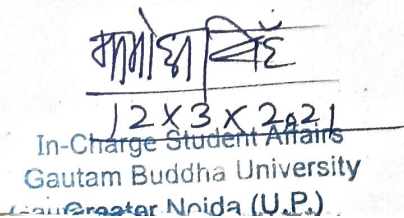 सिंह
12X3X2021
In-Charge Student Affairs
Gautam Buddha University
Greater Noida (U.P.)